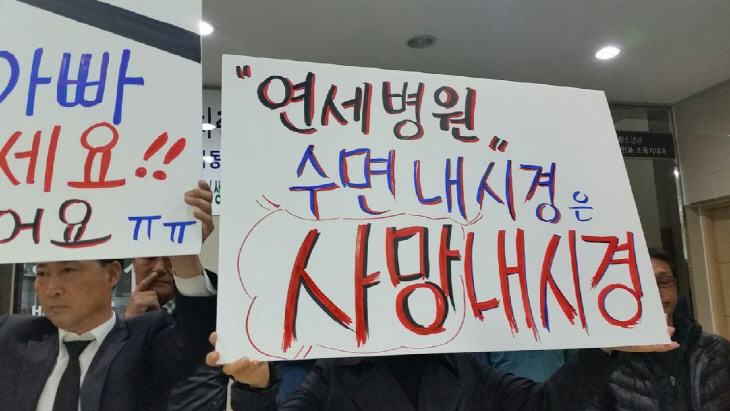 아빠
세요!!
어요 ㅠㅠ
"연세병원"
수면 내시경은
사망내시경